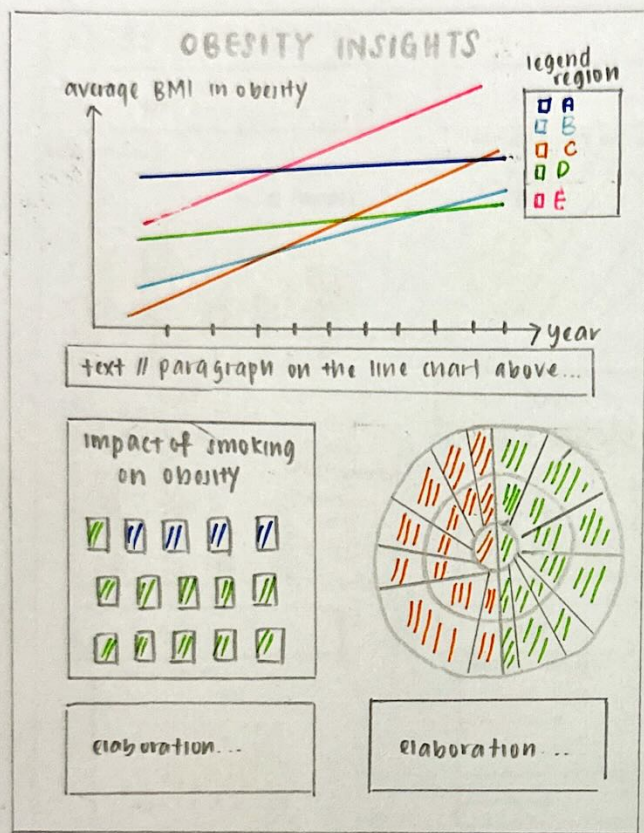 OBESITY INSIGHTS...
average BMI in obesity
legend
region
A
B
C
D
E
year
text // paragraph on the line chart above...
impact of smoking
on obesity
elaboration...
elaboration...